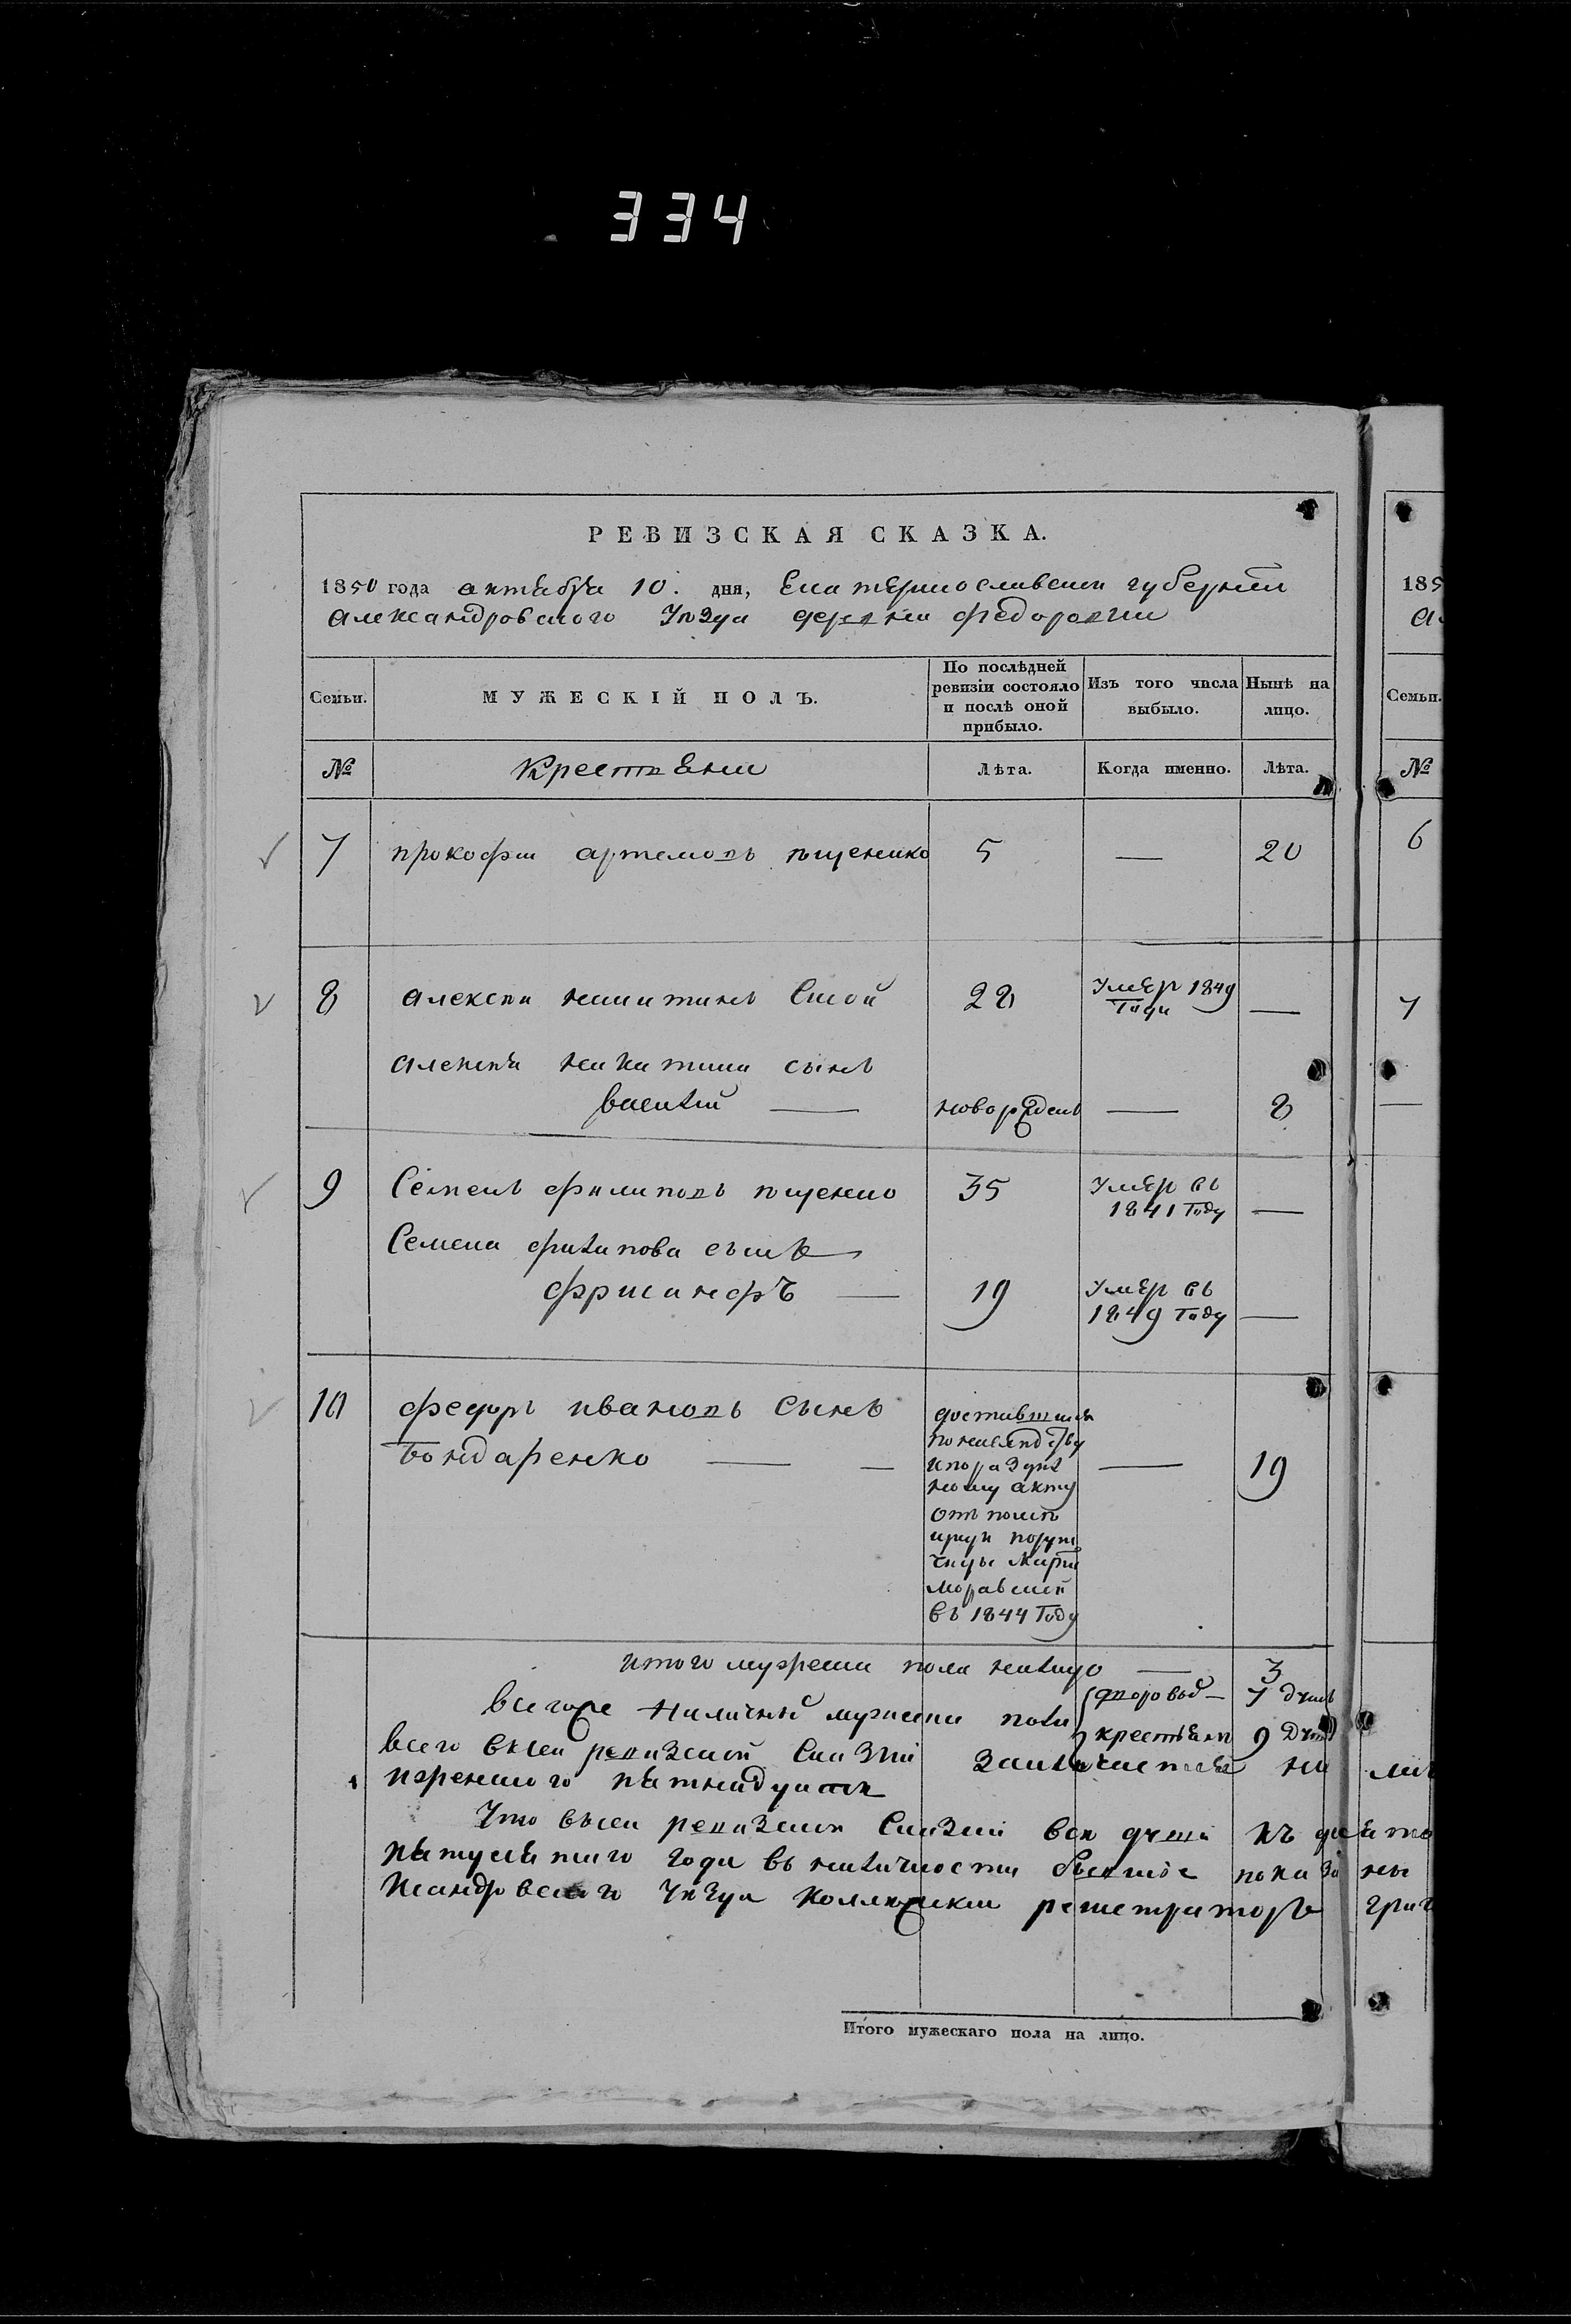 334
РЕВИЗСКАЯ СКАЗКА.
1850 года октября 10. дня, Екатеринославской губернии
Александровского Уезда деревни Федоровки
Семьи.
МУЖЕСКІЙ ПОЛЪ.
По послѣдней ревизіи состояло и послѣ оной прибыло.
Изъ того числа выбыло.
Нынѣ на лицо.
№
Крестьяни
Лѣта.
Когда именно.
Лѣта.
7 прокофи артемовъ пщенико 5 — 20
8 алексеи никитинъ 28 Умер 1849 Году —
алексея никитина сынъ
василий — новорожденъ — 8
9 Семенъ филиповъ пщенко 35 Умер въ 1841 Году —
Семена филипова сынъ
19 Умер въ 1849 Году —
10 федоръ ивановъ сынъ
Бондаренко — —
доставшися
по наследству
и по раздел
ному акту
отъ помѣ
щици поруч
чицы
Моравской
въ 1844 Году
— 19
итого мужеска пола налицо — 3
всегоже Наличнй мужеска пола
дворовых — 7 душъ
крестьянъ 9 душъ
всего въ сеи ревизской Сказки на
пятнадцать
Что въ сеи ревизской Сказки все души къ
года въ наличности показа
ксандровского Уезда регистраторъ
Итого мужескаго пола на лицо.
185
Семьи.
№
6
7